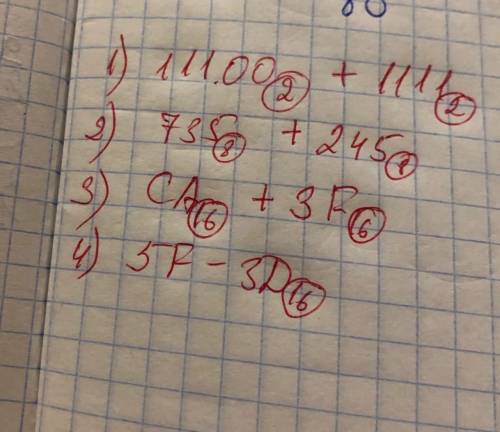 1) 11100₂ + 1111₂
2) 735₈ + 245₈
3) CA₁₆ + 3F₁₆
4) 5F - 3D₁₆